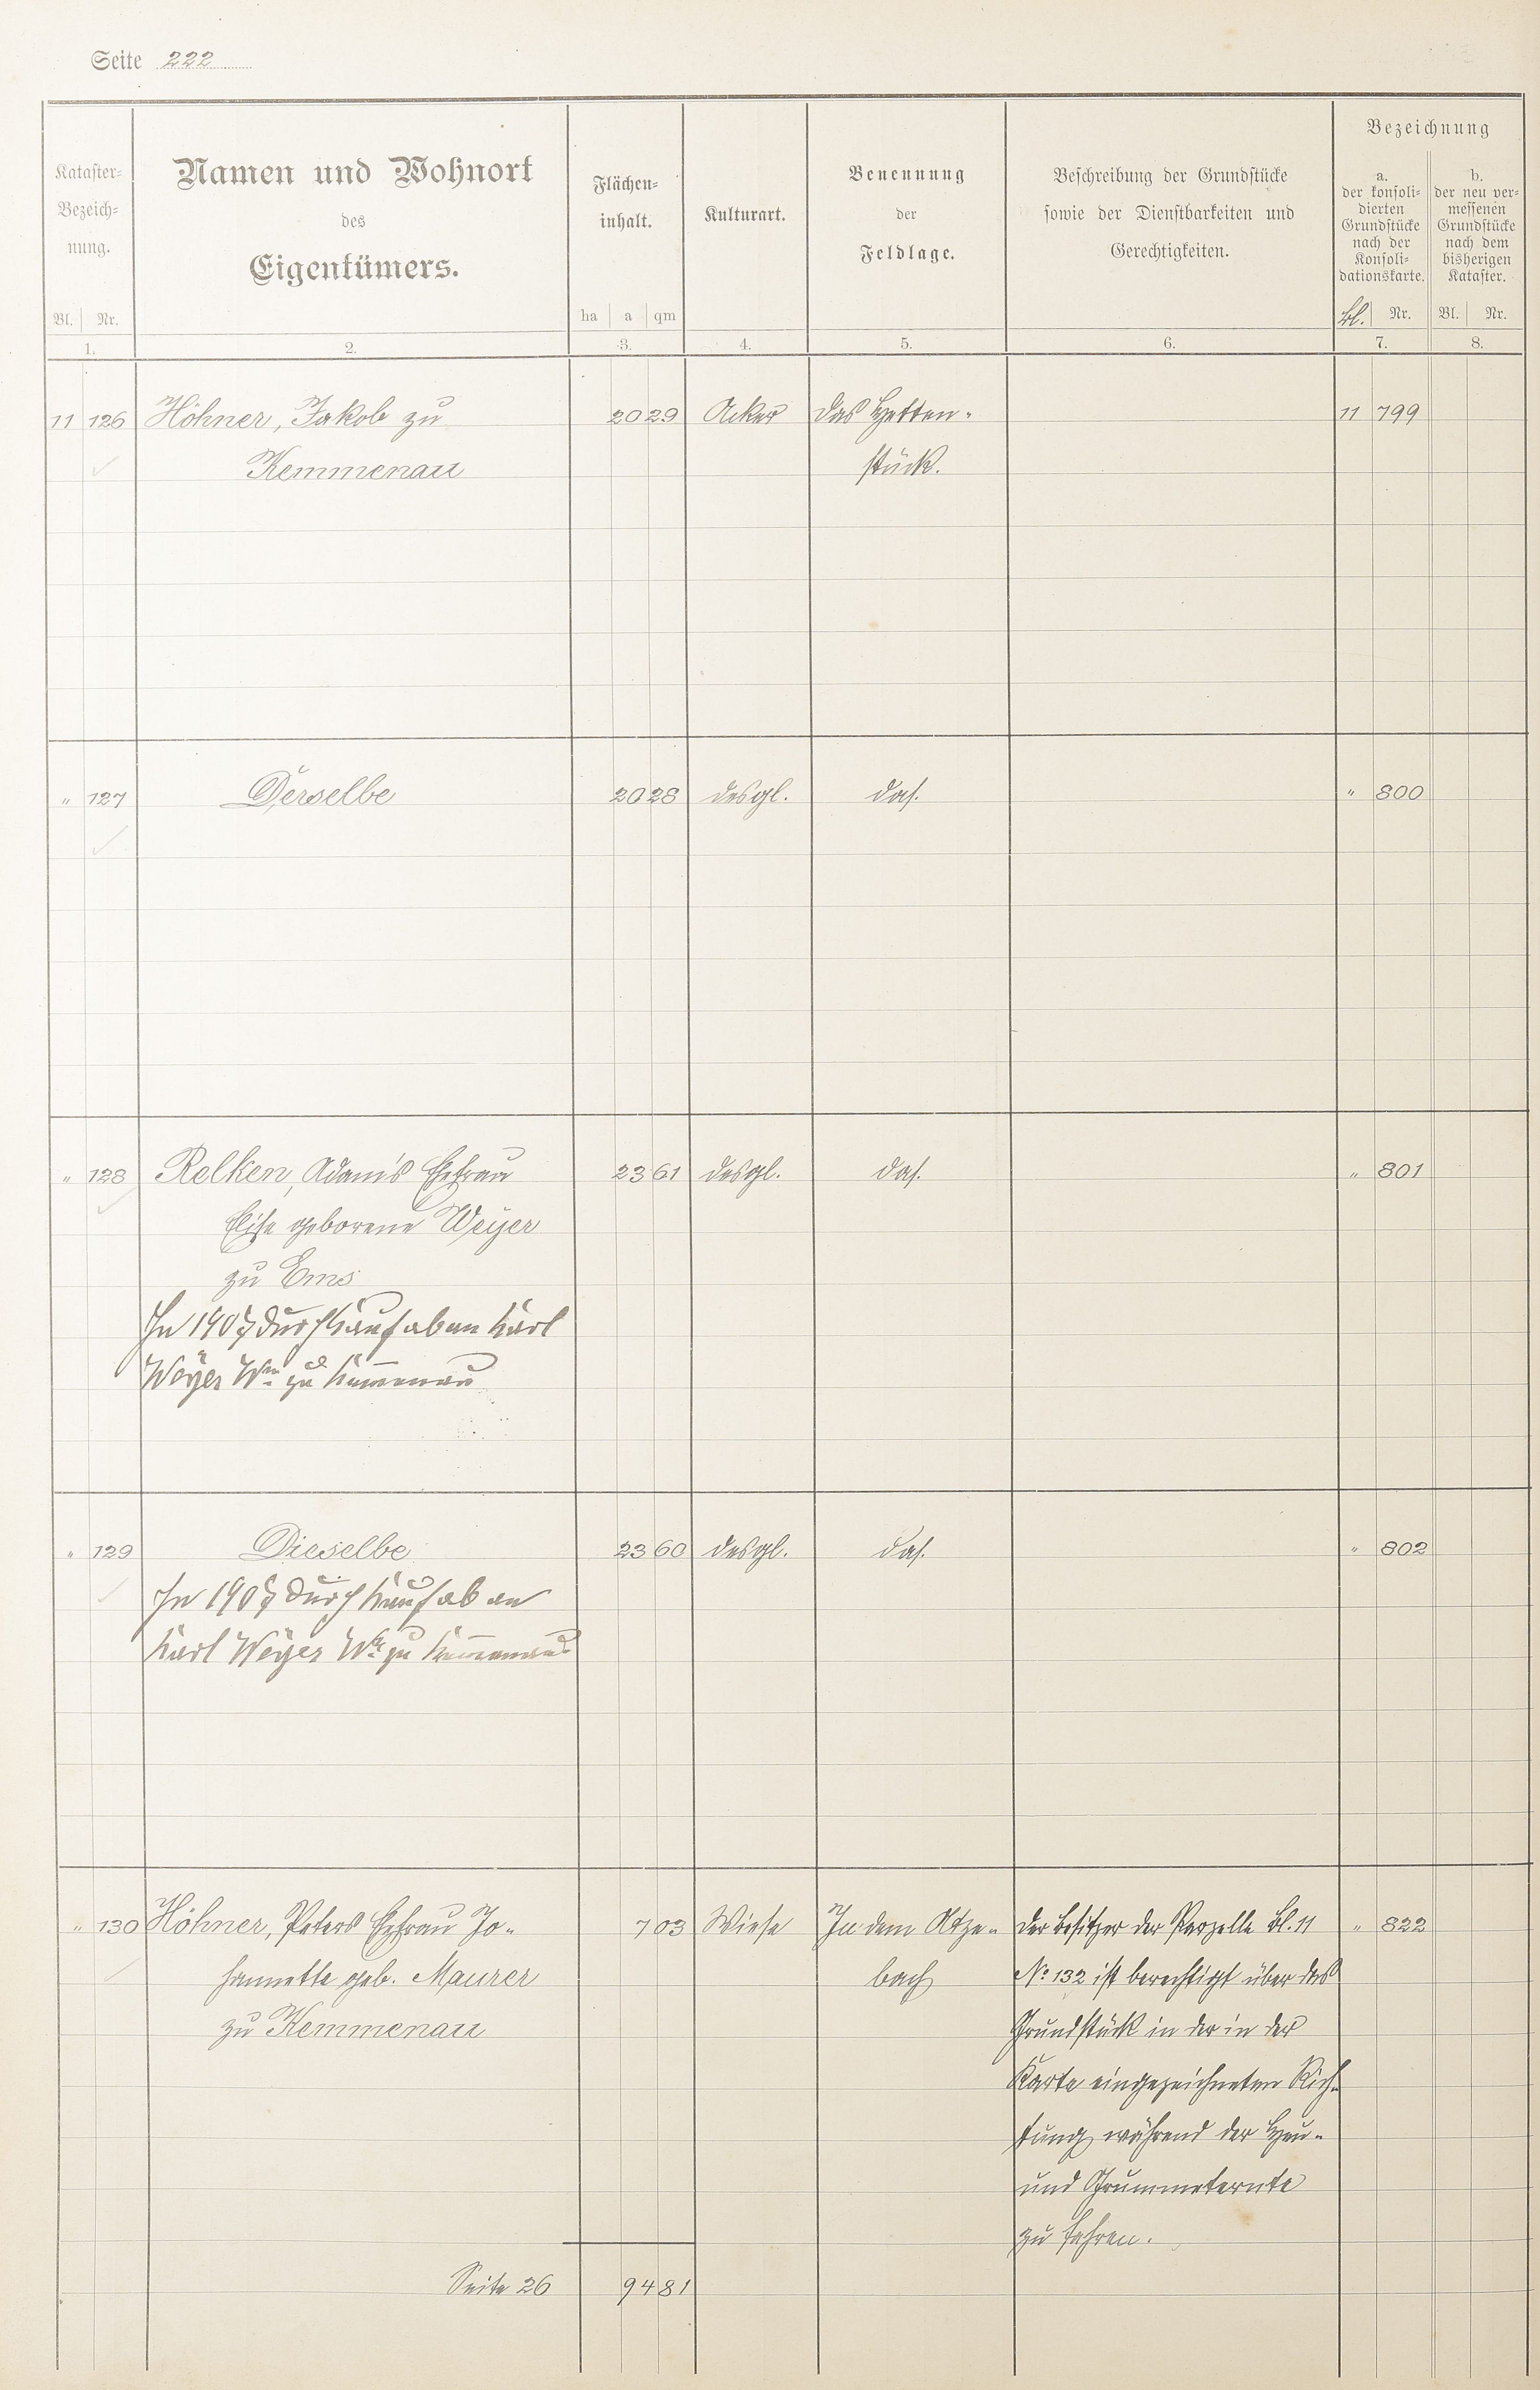 Seite 222
Kataster-
Bezeich-
nung.
Bl. Nr.
1.
Namen und Wohnort
des
Eigentümers.
2.
Flächen-
inhalt.
ha a qm
3.
Kulturart.
4.
Benennung
der
Feldlage.
5.
Beschreibung der Grundstücke
sowie der Dienstbarkeiten und
Gerechtigkeiten.
6.
Bezeichnung
a.
der konsoli-
dierten
Grundstücke
nach der
Konsoli-
dationskarte.
Bl. Nr.
7.
b.
der neu ver-
messenen
Grundstücke
nach dem
bisherigen
Kataster.
Bl. Nr.
8.
11 126 Höhner, Jakob zu 20 29 Acker Das Hetten- 11 799
Kemmenau stück.
" 127 Derselbe 20 28 desgl. das. " 800
" 128 Relken, Adam's Ehefrau 23 61 desgl. das. " 801
Elise geborene Weyer
zu Ems
In 1907 durch Kauf ab an Karl
Weyer zu Kemmenau
" 129 Dieselbe 23 60 desgl. das. " 802
In 1907 durch Kauf ab an
Karl Weyer zu Kemmenau
" 130 Höhner, Peters Ehefrau Jo- 7 03 Wiese In dem Atze- Der Besitzer der Parzelle Bl. 11 " 822
hannette geb. Maurer bach No 132 ist berechtigt über das
zu Kemmenau Grundstück in der in der
Karte eingezeichneten Rich-
tung während der Heu-
und Grummeternte
zu fahren.
Seite 26 94 81